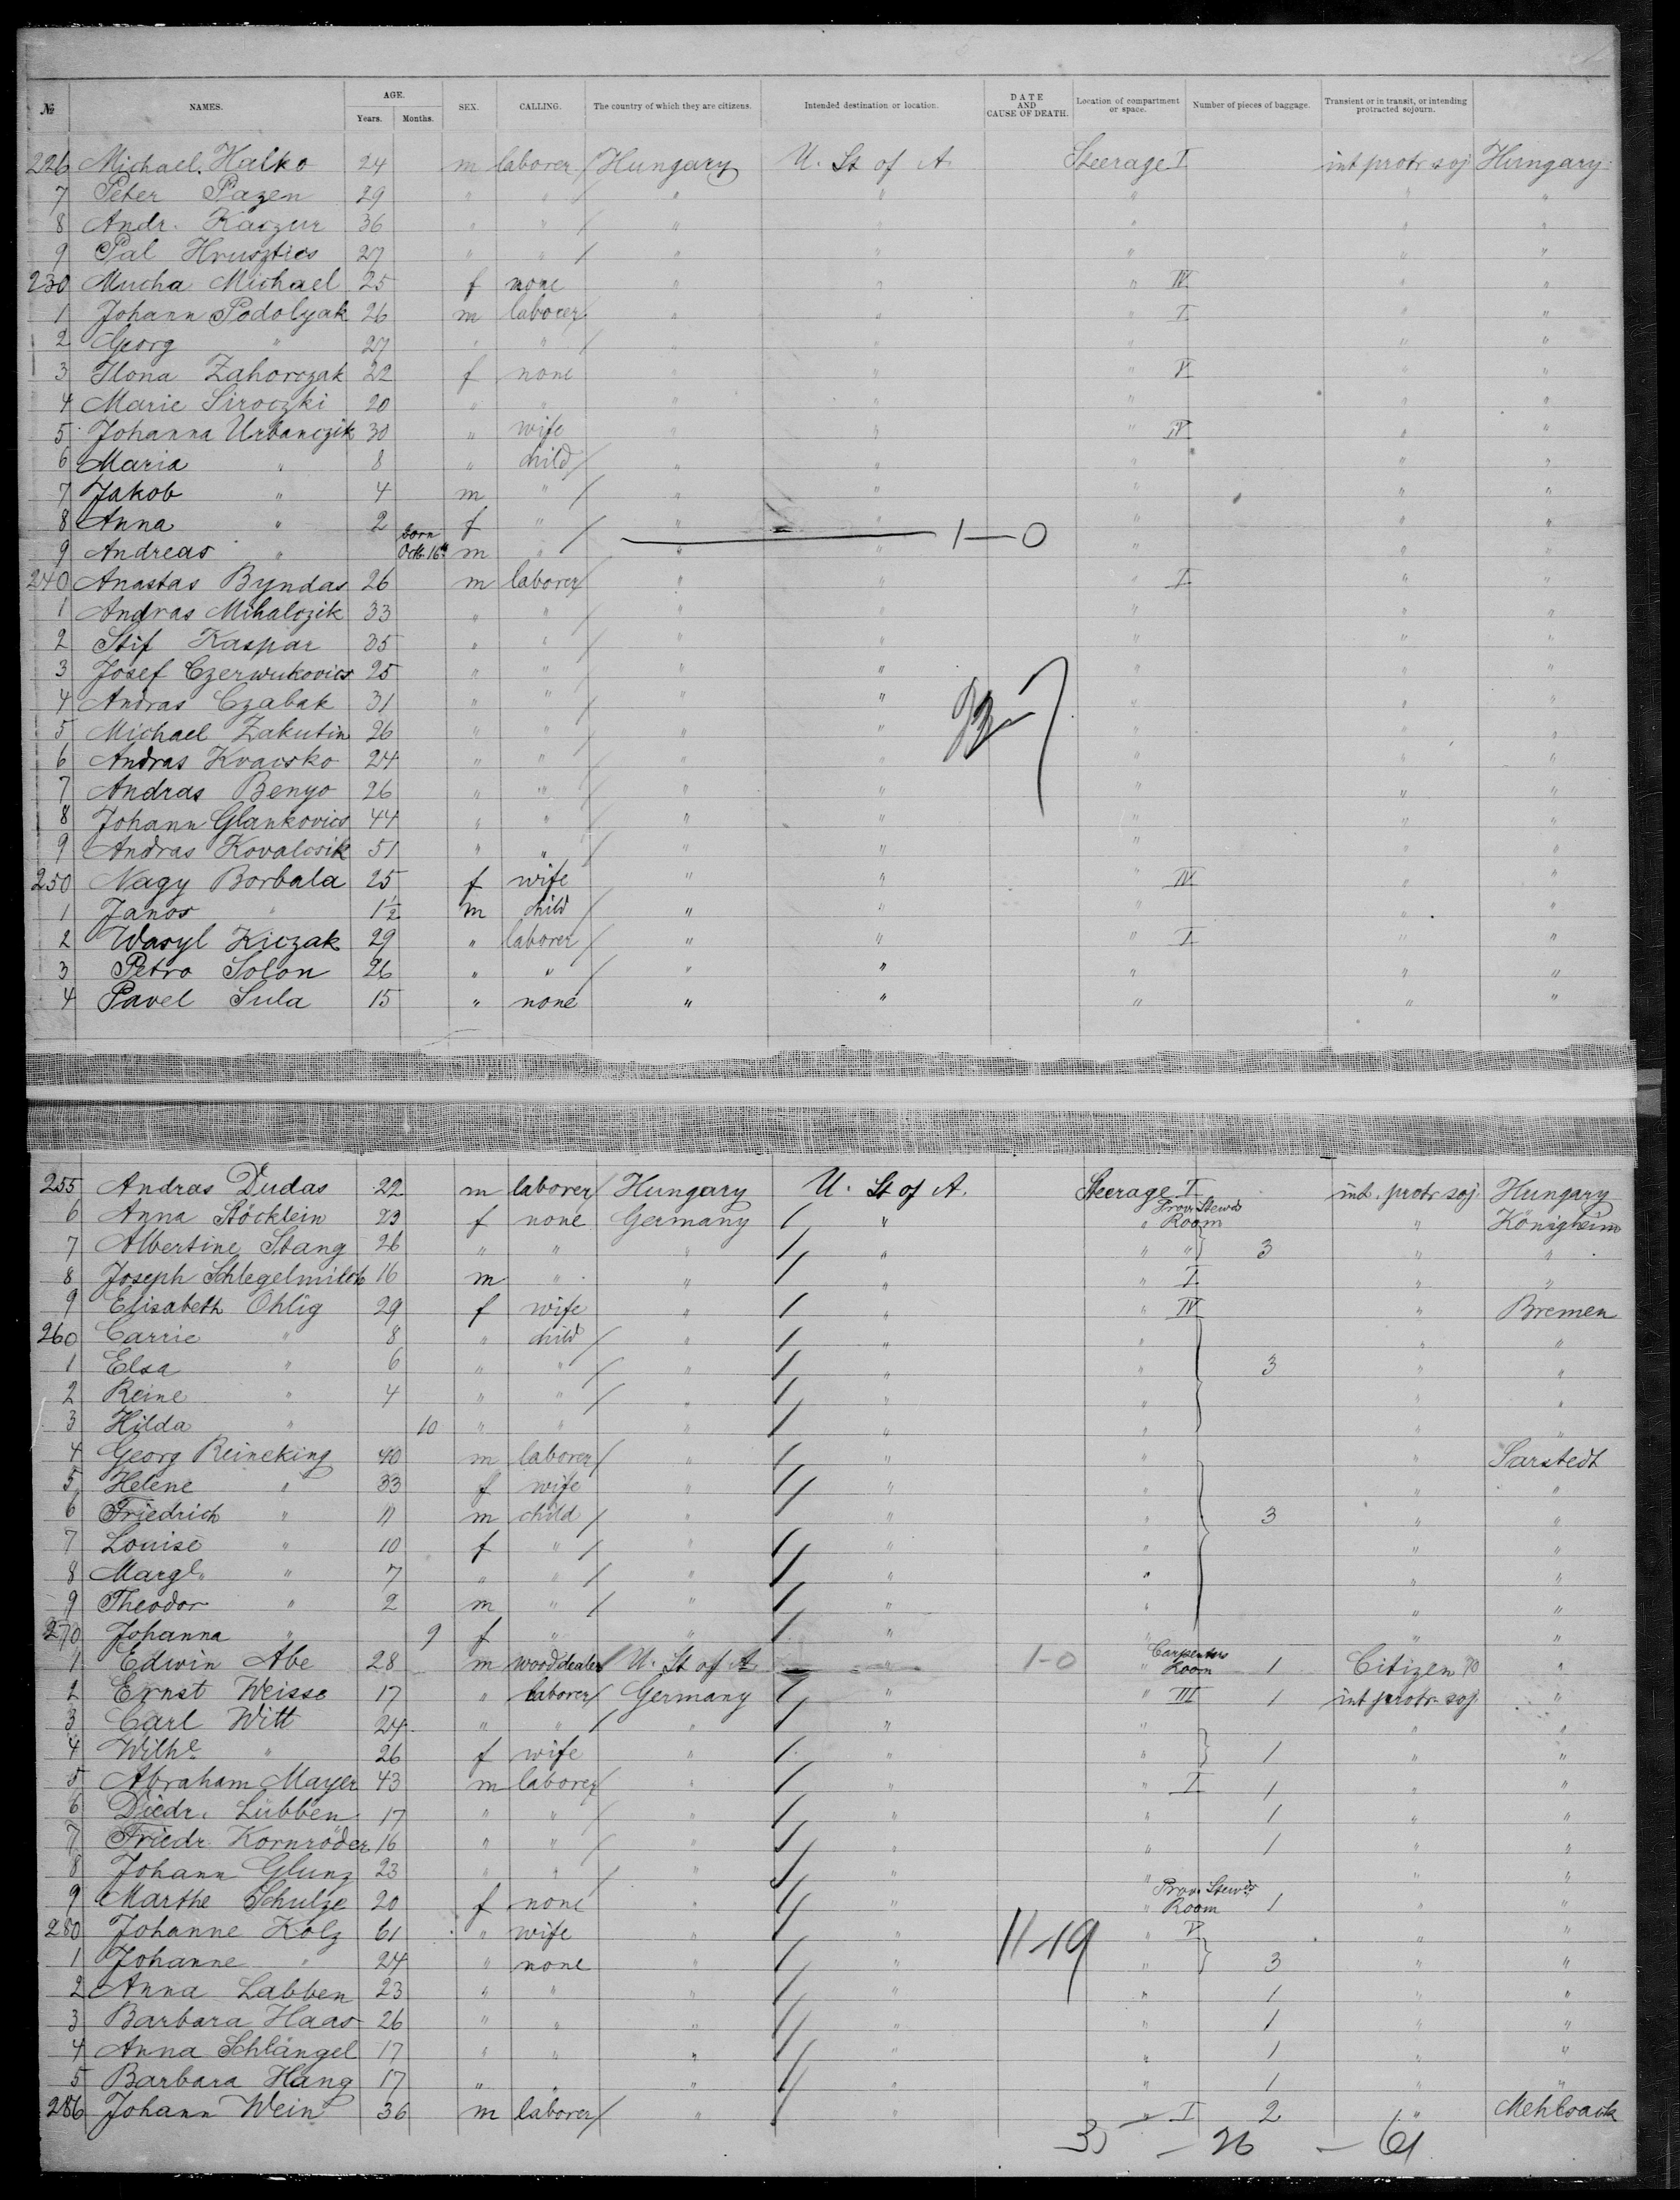 № NAMES. AGE. Years. Months. SEX. CALLING. The country of which they are citizens. Intended destination or location. DATE AND CAUSE OF DEATH. Location of compartment or space. Number of pieces of baggage. Transient or in transit, or intending protracted sojourn.
226 Michael Halko 24 m laborer / Hungary U. St of A. Steerage I int protr soj Hungary
7 Peter Pazen 29 " " / " " " " "
8 Andr. Kaczur 36 " " / " " " " "
9 Pal Hrusztics 27 " " / " " " " "
230 Mucha Michael 25 f none " " " IV " "
1 Johann Podolyak 26 m laborer / " " " I " "
2 Georg " 27 " " / " " " " "
3 Ilona Zahorczak 22 f none " " " V " "
4 Marie Siroczki 20 " " " " " " "
5 Johanna Urbanczik 30 " wife " " " IV " "
6 Maria " 8 " child / " " " " "
7 Jakob " 4 m " / " " " " "
8 Anna " 2 f " / " " " " "
9 Andreas " born Oct. 16th m " / " " 1-0 " " "
240 Anastas Byndas 26 m laborer / " " " I " "
1 Andras Mihalczik 33 " " / " " " " "
2 Stif Kaspar 35 " " / " " " " "
3 Josef Czerwukovics 25 " " / " " " " "
4 Andras Czabak 31 " " / " " " " "
5 Michael Zakutin 26 " " / " " " " "
6 Andras Kvacsko 24 " " / " " " " "
7 Andras Benyo 26 " " / " " " " "
8 Johann Glankovics 44 " " / " " " " "
9 Andras Kovalcsik 51 " " / " " " " "
250 Nagy Borbala 25 f wife " " " IV " "
1 Janos " 1½ m child / " " " " "
2 Wasyl Kiczak 29 " laborer / " " " I " "
3 Petro Solon 26 " " / " " " " "
4 Pavel Sula 15 " none " " " " "
255 Andras Dudas 22 m laborer / Hungary U. St of A. Steerage I int. protr soj. Hungary
6 Anna Stöcklein 23 f none Germany / " " Prov. Stewds Room " Königheim
7 Albertine Stang 26 " " " / " " " 3 " "
8 Joseph Schlegelmilch 16 m " " / " " I " "
9 Elisabeth Ohlig 29 f wife " / " " IV " Bremen
260 Carrie " 8 " child / " / " " " "
1 Elsa " 6 " " / " / " " 3 " "
2 Reine " 4 " " / " / " " " "
3 Hilda " 10 " " " / " " " "
4 Georg Reineking 40 m laborer / " / " " " Sarstedt
5 Helene " 33 f wife " / " " " "
6 Friedrich " 11 m child / " / " " 3 " "
7 Louise " 10 f " / " / " " " "
8 Margl. " 7 " " / " / " " " "
9 Theodor " 2 m " / " / " " " "
270 Johanna " 9 f " " / " " " "
1 Edwin Abe 28 m wooddealer / U. St of A " 1-0 " Carpenters Room 1 Citizen "
2 Ernst Weisse 17 " laborer / Germany / " " III 1 int protr. soj. "
3 Carl Witt 24 " " / " / " " " "
4 Wilhe " 26 f wife " / " " 1 " "
5 Abraham Mayer 43 m laborer / " / " " I 1 " "
6 Diedr. Lübben 17 " " / " / " " 1 " "
7 Friedr. Kornröder 16 " " / " / " " 1 " "
8 Johann Glunz 23 " " / " / " " " "
9 Marthe Schulze 20 f none " / " " Prov. Stewds Room 1 " "
280 Johanne Kolz 61 " wife " / " " V " "
1 Johanne " 24 " none " / " 11-19 " 3 " "
2 Anna Labben 23 " " " / " " 1 " "
3 Barbara Haas 26 " " " / " " 1 " "
4 Anna Schlängel 17 " " " / " " 1 " "
5 Barbara Hang 17 " " " / " " 1 " "
286 Johann Wein 36 m laborer / " / " " I 2 " Mehlsack
35 - 26 - 61